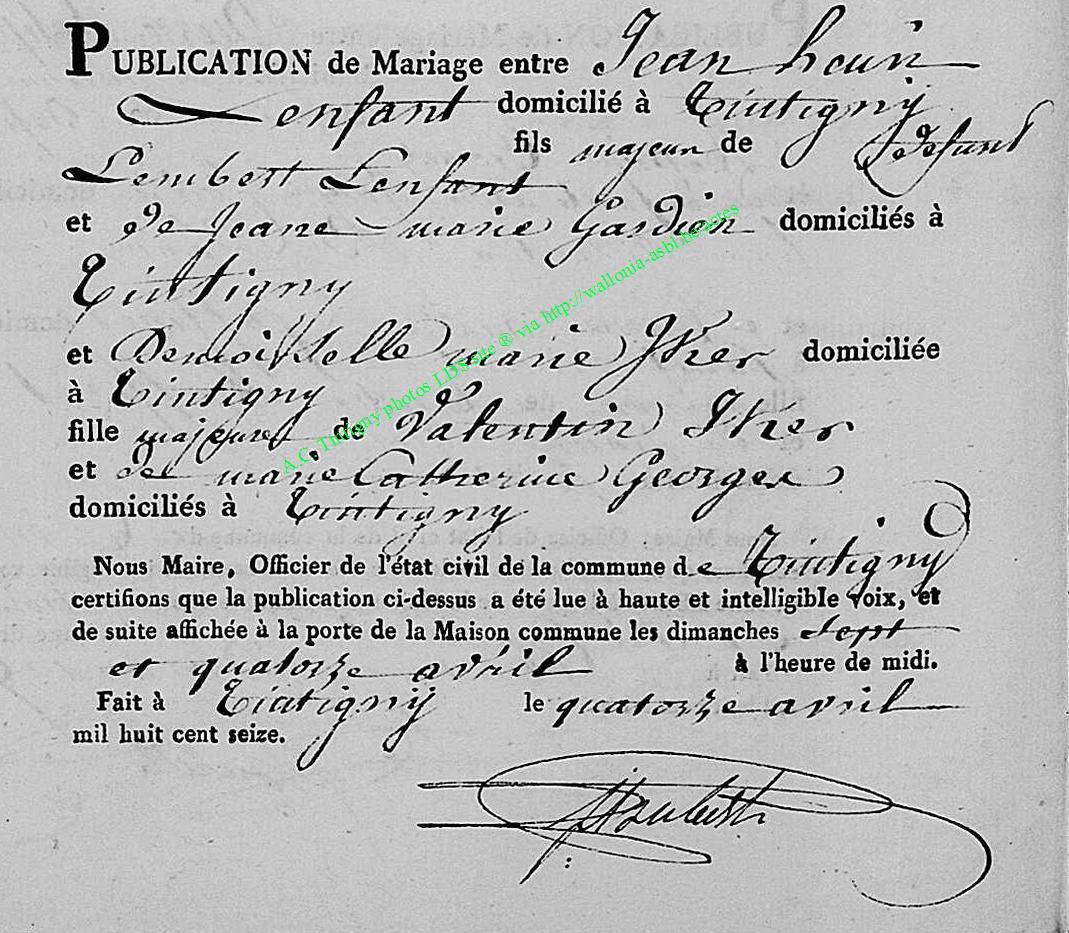 PUBLICATION de Mariage entre Jean henri
Lenfant domicilié à Tintigny
fils majeur de defunt
Lembert Lenfant
et de Jeane marie Gardien domiciliés à
Tintigny
et Demoiselle marie Jther domiciliée
à Tintigny
fille majeure de Valentin Jther
et de marie Catherine Georges
domiciliés à Tintigny
Nous Maire, Officier de l'état civil de la commune de Tintigny
certifions que la publication ci-dessus a été lue à haute et intelligible voix, et
de suite affichée à la porte de la Maison commune les dimanches sept
et quatorze avril à l'heure de midi.
Fait à Tintigny le quatorze avril
mil huit cent seize.
A.C. Tintigny photos LDS site ® via http://wallonia-asbl.be/actes